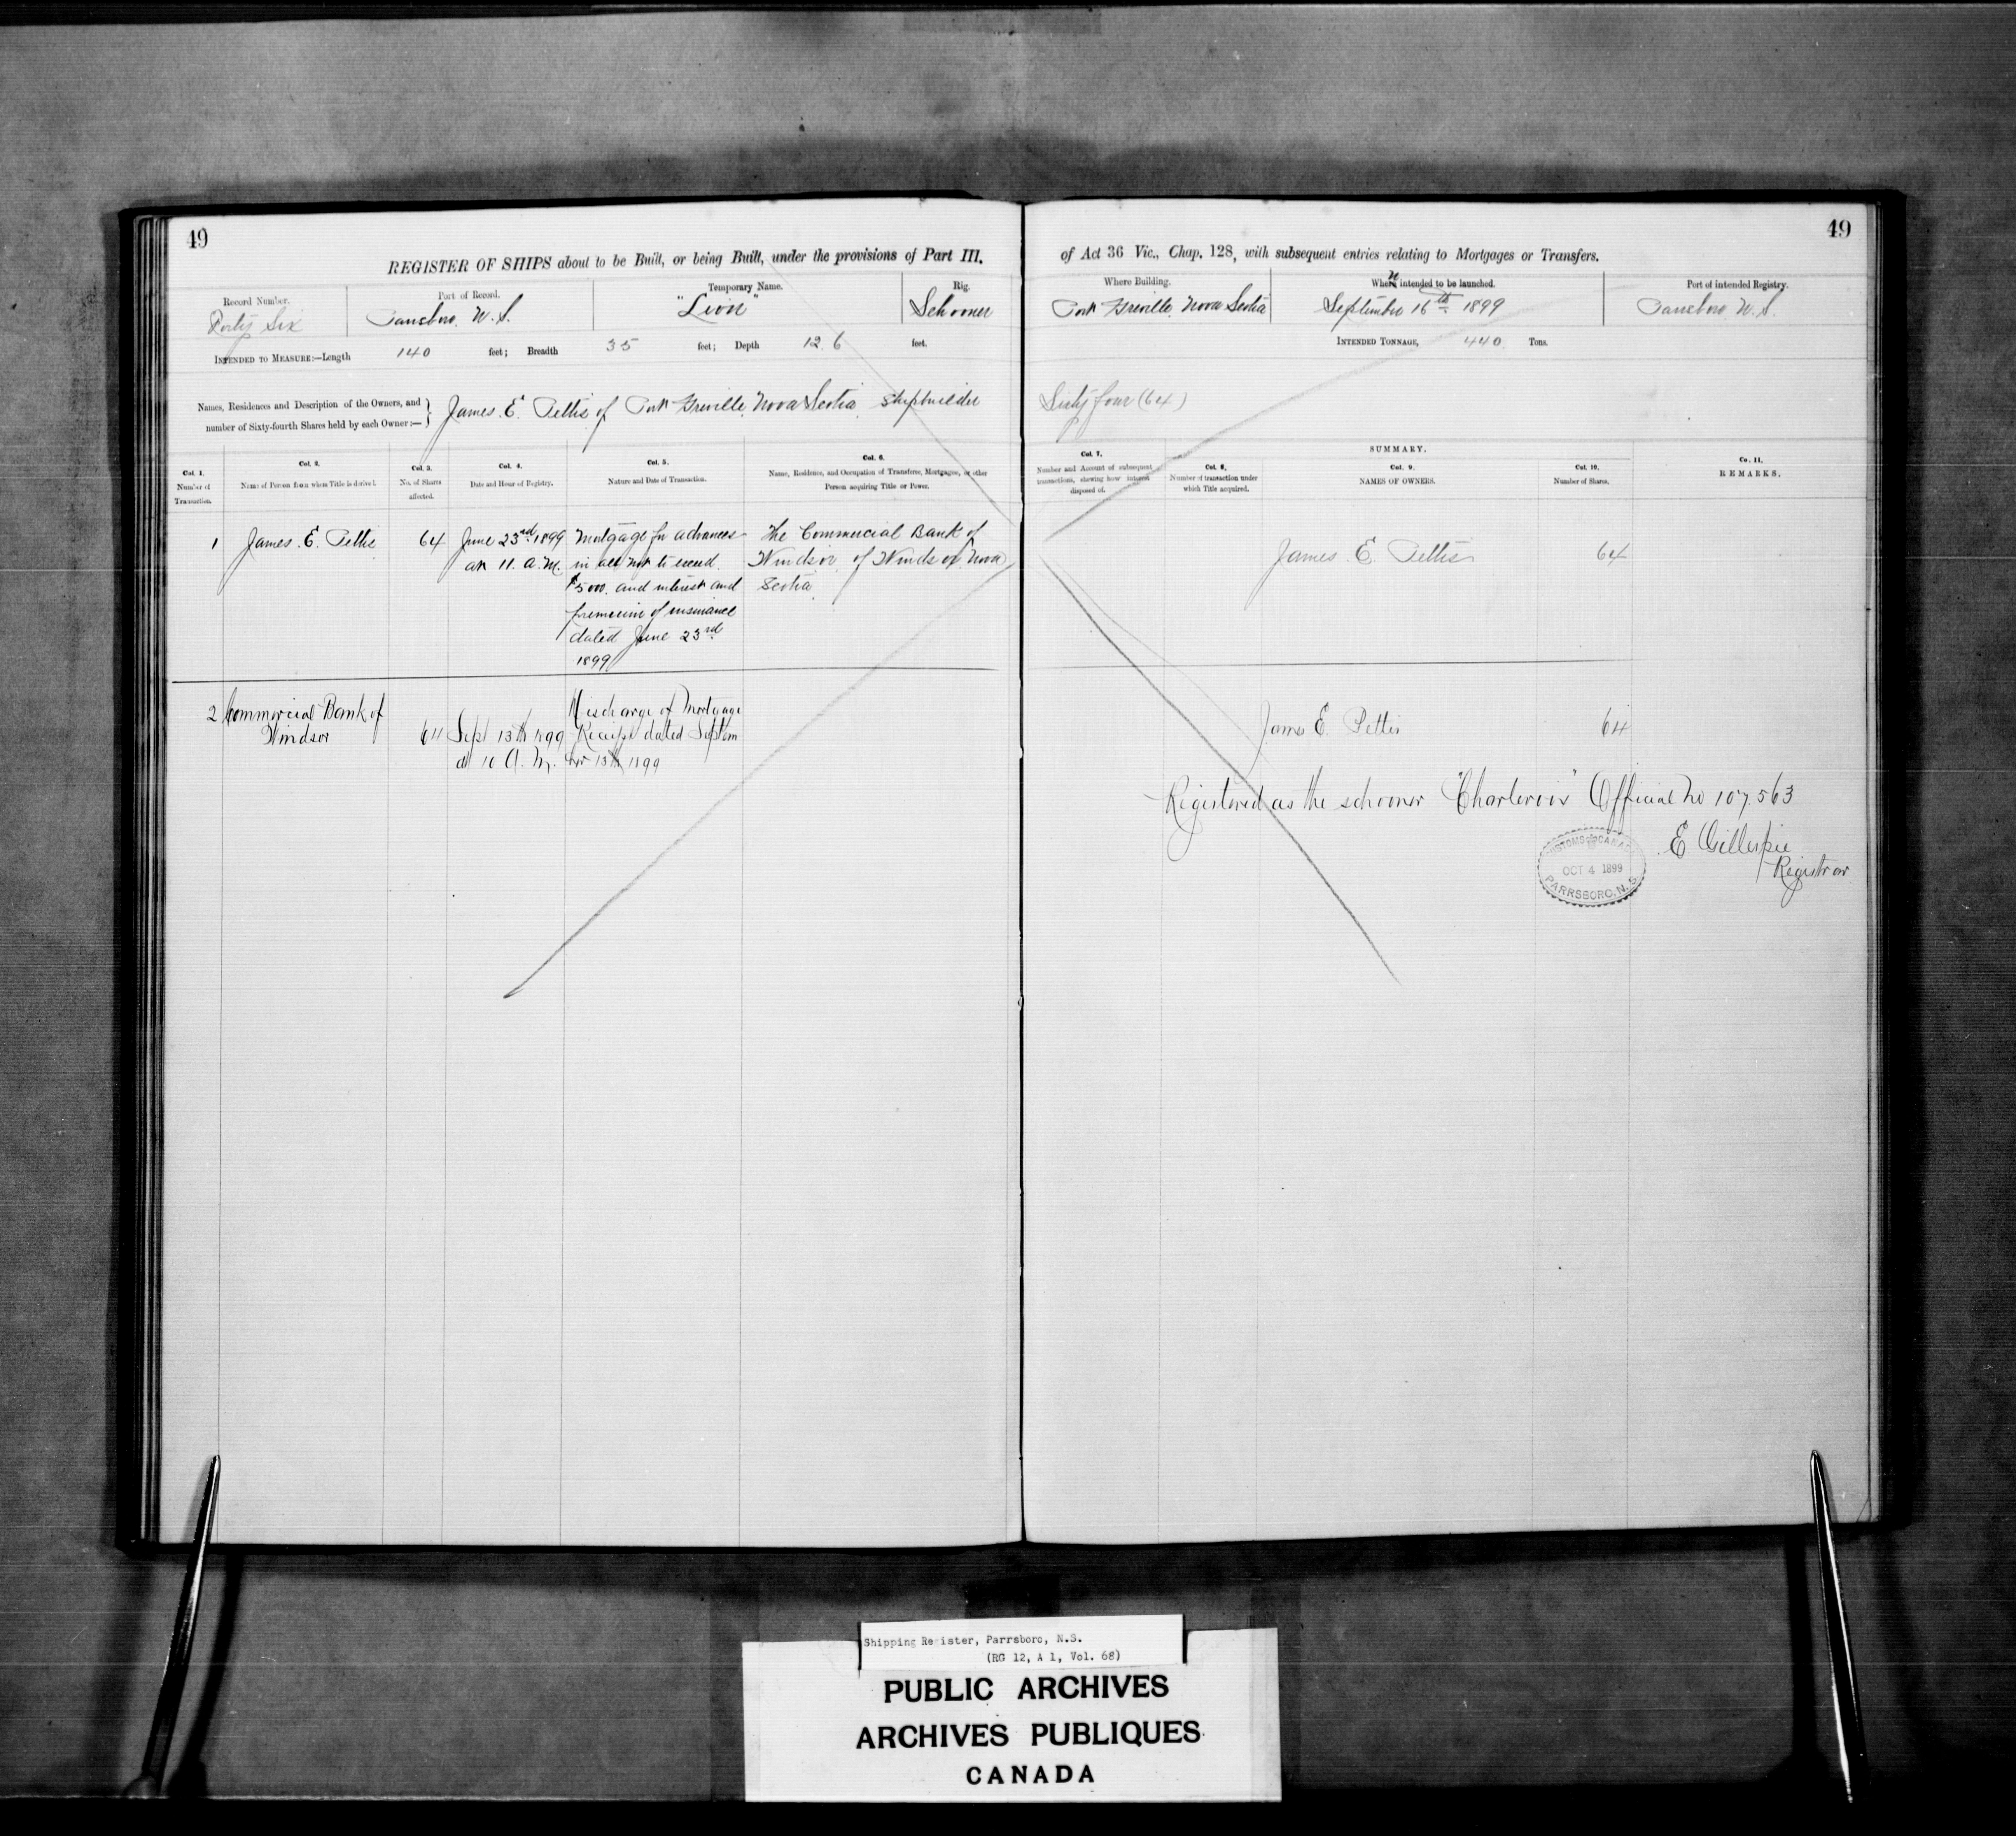 49
REGISTER OF SHIPS about to be Built, or being Built, under the provisions of Part III.
Record Number.
Forty Six
Port of Record.
Parrsboro. N. S.
Temporary Name.
"Lion"
Rig.
Schooner
INTENDED TO MEASURE:—Length 140 feet; Breadth 35 feet; Depth 12.6 feet.
Names, Residences and Description of the Owners, and
number of Sixty-fourth Shares held by each Owner:—}
James. E. Pettis of Port Greville, Nova Scotia shipbuilder
Col. 1.
Number of
Transaction.
Col. 2.
Name of Person from whom Title is derived.
Col. 3.
No. of Shares
affected.
Col. 4.
Date and Hour of Registry.
Col. 5.
Nature and Date of Transaction.
Col. 6.
Name, Residence, and Occupation of Transferee, Mortgagee, or other
Person acquiring Title or Power.
1
James. E. Pettis
64
June 23rd 1899
at 11. a.m.
Mortgage for advances
in all not to exceed.
$5000. and interest and
premium of insurance
dated June 23rd
1899
The Commercial Bank of
Windsor, of Windsor, Nova
Scotia.
2
Commercial Bank of
Windsor
64
Sept 13th 1899
at 10 A. M.
Discharge of Mortgage
Receipt dated Septem
ber 13th 1899
49
of Act 36 Vic., Chap. 128, with subsequent entries relating to Mortgages or Transfers.
Where Building.
Port Greville, Nova Scotia
When intended to be launched.
September 16th 1899
Port of intended Registry.
Parrsboro N. S.
INTENDED TONNAGE, 440. Tons.
Sixty four (64)
Col. 7.
Number and Account of subsequent
transactions, showing how interest
disposed of.
SUMMARY.
Col. 8.
Number of transaction under
which Title acquired.
Col. 9.
NAMES OF OWNERS.
Col. 10.
Number of Shares.
Co. 11.
REMARKS.
James. E. Pettis
64
James E. Pettis
64
Registered as the schooner "Charlevoix" Official No 107.563
E Gillespie
Registrar
CUSTOMS CANADA
OCT 4 1899
PARRSBORO, N. S.
Shipping Register, Parrsboro, N.S.
(RG 12, A 1, Vol. 68)
PUBLIC ARCHIVES
ARCHIVES PUBLIQUES
CANADA